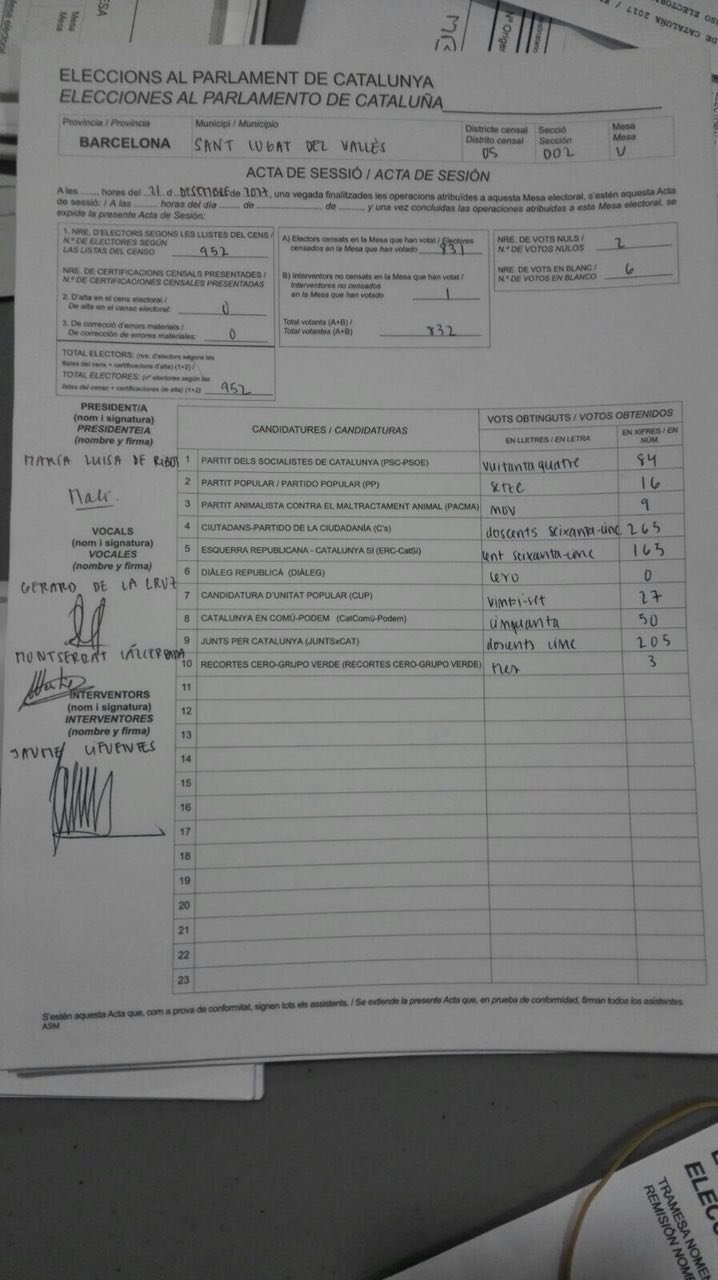 ELECCIONS AL PARLAMENT DE CATALUNYA
ELECCIONES AL PARLAMENTO DE CATALUÑA
Província / Provincia
BARCELONA
Municipi / Municipio
SANT CUGAT DEL VALLÈS
Districte censal
Distrito censal
05
Secció
Sección
002
Mesa
Mesa
U
ACTA DE SESSIÓ / ACTA DE SESIÓN
A les ....... hores del .21. d .DESEMBRE de 2017, una vegada finalitzades les operacions atribuïdes a aquesta Mesa electoral, s'estén aquesta Acta
de sessió: / A las ....... horas del día ....... de ....................... de ........, y una vez concluidas las operaciones atribuidas a esta Mesa electoral, se
expide la presente Acta de Sesión:
1. NRE. D'ELECTORS SEGONS LES LLISTES DEL CENS /
N.º DE ELECTORES SEGÚN
LAS LISTAS DEL CENSO 952
NRE. DE CERTIFICACIONS CENSALS PRESENTADES /
N.º DE CERTIFICACIONES CENSALES PRESENTADAS
2. D'alta en el cens electoral /
De alta en el censo electoral: 0
3. De correcció d'errors materials /
De corrección de errores materiales: 0
TOTAL ELECTORS: (nre. d'electors segons les
llistes del cens + certificacions d'alta) (1+2) /
TOTAL ELECTORES: (nº electores según las
listas del censo + certificaciones de alta) (1+2) 952
A) Electors censats en la Mesa que han votat / Electores
censados en la Mesa que han votado 831
B) Interventors no censats en la Mesa que han votat /
Interventores no censados
en la Mesa que han votado 1
Total votants (A+B) /
Total votantes (A+B) 832
NRE. DE VOTS NULS /
N.º DE VOTOS NULOS 2
NRE. DE VOTS EN BLANC /
N.º DE VOTOS EN BLANCO 6
PRESIDENT/A
(nom i signatura)
PRESIDENTE/A
(nombre y firma)
MARÍA LUISA DE
VOCALS
(nom i signatura)
VOCALES
(nombre y firma)
GERARD DE LA CRUZ
MONTSERRAT
INTERVENTORS
(nom i signatura)
INTERVENTORES
(nombre y firma)
JAUME CIFUENTES
CANDIDATURES / CANDIDATURAS
VOTS OBTINGUTS / VOTOS OBTENIDOS
EN LLETRES / EN LETRA
EN XIFRES / EN NÚM.
1 PARTIT DELS SOCIALISTES DE CATALUNYA (PSC-PSOE) vuitanta quatre 84
2 PARTIT POPULAR / PARTIDO POPULAR (PP) setze 16
3 PARTIT ANIMALISTA CONTRA EL MALTRACTAMENT ANIMAL (PACMA) nou 9
4 CIUTADANS-PARTIDO DE LA CIUDADANÍA (C's) doscents seixanta-cinc 265
5 ESQUERRA REPUBLICANA - CATALUNYA SI (ERC-CatSí) cent seixanta-cinc 165
6 DIÀLEG REPUBLICÀ (DIÀLEG) cero 0
7 CANDIDATURA D'UNITAT POPULAR (CUP) vinti-set 27
8 CATALUNYA EN COMÚ-PODEM (CatComú-Podem) cinquanta 50
9 JUNTS PER CATALUNYA (JUNTSxCAT) doscents cinc 205
10 RECORTES CERO-GRUPO VERDE (RECORTES CERO-GRUPO VERDE) tres 3
11
12
13
14
15
16
17
18
19
20
21
22
23
S'estén aquesta Acta que, com a prova de conformitat, signen tots els assistents. / Se extiende la presente Acta que, en prueba de conformidad, firman todos los asistentes.
ASM
TRAMESA